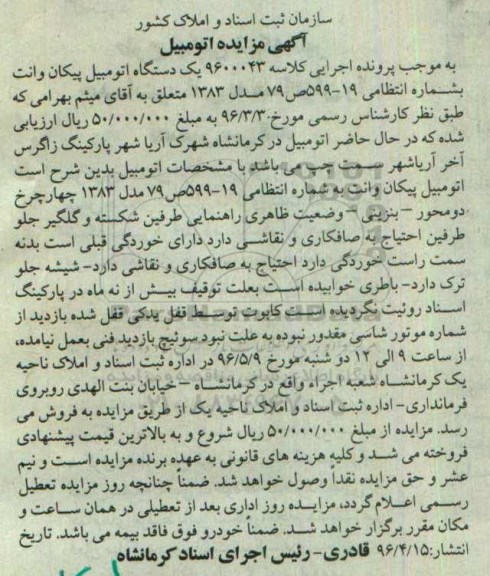 سازمان ثبت اسناد و املاک کشور
آگهی مزایده اتومبیل
به موجب پرونده اجرایی کلاسه ۹۶۰۰۰۴۳ یک دستگاه اتومبیل پیکان وانت
بشماره انتظامی ۱۹-۵۹۹ص۷۹ مدل ۱۳۸۳ متعلق به آقای میثم بهرامی که
طبق نظر کارشناس رسمی مورخ ۹۶/۳/۳۰ به مبلغ ۵۰/۰۰۰/۰۰۰ ریال ارزیابی
شده که در حال حاضر اتومبیل در کرمانشاه شهرک آریا شهر پارکینگ زاگرس
آخر آریاشهر سمت چپ می باشد با مشخصات اتومبیل بدین شرح است
اتومبیل پیکان وانت به شماره انتظامی ۱۹-۵۹۹ص۷۹ مدل ۱۳۸۳ چهارچرخ
دومحور – بنزینی – وضعیت ظاهری راهنمایی طرفین شکسته و گلگیر جلو
طرفین احتیاج به صافکاری و نقاشی دارد دارای خوردگی قبلی است بدنه
سمت راست خوردگی دارد احتیاج به صافکاری و نقاشی دارد- شیشه جلو
ترک دارد- باطری خوابیده است بعلت توقیف بیش از نه ماه در پارکینگ
اسناد روئیت نگردیده است کاپوت توسط قفل یدکی قفل شده بازدید از
شماره موتور شاسی مقدور نبوده به علت نبود سوئیچ بازدید فنی بعمل نیامده،
از ساعت ۹ الی ۱۲ دو شنبه مورخ ۹۶/۵/۹ در اداره ثبت اسناد و املاک ناحیه
یک کرمانشاه شعبه اجراء واقع در کرمانشاه – خیابان بنت الهدی روبروی
فرمانداری- اداره ثبت اسناد و املاک ناحیه یک از طریق مزایده به فروش می
رسد. مزایده از مبلغ ۵۰/۰۰۰/۰۰۰ ریال شروع و به بالاترین قیمت پیشنهادی
فروخته می شد و کلیه هزینه های قانونی به عهده برنده مزایده است و نیم
عشر و حق مزایده نقداً وصول خواهد شد. ضمناً چنانچه روز مزایده تعطیل
رسمی اعلام گردد، مزایده روز اداری بعد از تعطیلی در همان ساعت و
مکان مقرر برگزار خواهد شد. ضمناً خودرو فوق فاقد بیمه می باشد. تاریخ
انتشار:۹۶/۴/۱۵ قادری- رئیس اجرای اسناد کرمانشاه